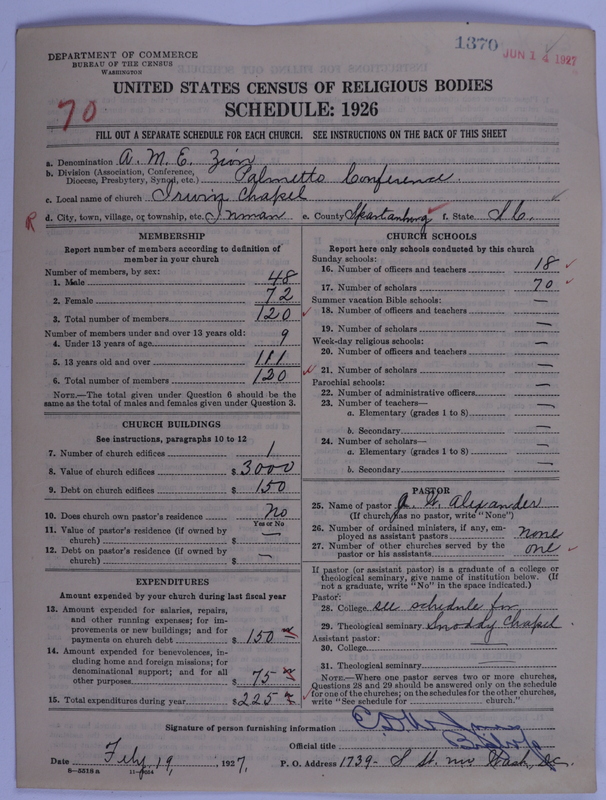 1370
JUN 14 1927
DEPARTMENT OF COMMERCE
BUREAU OF THE CENSUS
WASHINGTON
UNITED STATES CENSUS OF RELIGIOUS BODIES
SCHEDULE: 1926
70
FILL OUT A SEPARATE SCHEDULE FOR EACH CHURCH. SEE INSTRUCTIONS ON THE BACK OF THIS SHEET
a. Denomination A. M. E. Zion
b. Division (Association, Conference, Diocese, Presbytery, Synod, etc.) Palmetto Conference
c. Local name of church Irwin Chapel
R d. City, town, village, or township, etc. Inman e. County Spartanburg f. State S.C.
MEMBERSHIP
Report number of members according to definition of
member in your church
Number of members, by sex:
1. Male 48
2. Female 72
3. Total number of members 120
Number of members under and over 13 years old:
4. Under 13 years of age 9
5. 13 years old and over 111
6. Total number of members 120
NOTE.—The total given under Question 6 should be
same as the total of males and females given under Question 3.
CHURCH BUILDINGS
See instructions, paragraphs 10 to 12
7. Number of church edifices 1
8. Value of church edifices $3000
9. Debt on church edifices $150
10. Does church own pastor's residence No
Yes or No
11. Value of pastor's residence (if owned by
church) $ —
12. Debt on pastor's residence (if owned by
church) $ —
EXPENDITURES
Amount expended by your church during last fiscal year
13. Amount expended for salaries, repairs,
and other running expenses; for im-
provements or new buildings; and for
payments on church debt $150
14. Amount expended for benevolences, in-
cluding home and foreign missions; for
denominational support; and for all
other purposes $75
15. Total expenditures during year $225
CHURCH SCHOOLS
Report here only schools conducted by this church
Sunday schools:
16. Number of officers and teachers 18
17. Number of scholars 70
Summer vacation Bible schools:
18. Number of officers and teachers —
19. Number of scholars —
Week-day religious schools:
20. Number of officers and teachers —
21. Number of scholars —
Parochial schools:
22. Number of administrative officers —
23. Number of teachers—
a. Elementary (grades 1 to 8) —
b. Secondary —
24. Number of scholars—
a. Elementary (grades 1 to 8) —
b. Secondary —
PASTOR
25. Name of pastor Alexander
(If church has no pastor, write "None")
26. Number of ordained ministers, if any, em-
ployed as assistant pastors none
27. Number of other churches served by the
pastor or his assistants one
If pastor (or assistant pastor) is a graduate of a college or
theological seminary, give name of institution below. (If
not a graduate, write "No" in the space indicated.)
Pastor:
28. College see schedule for
29. Theological seminary Snoddy Chapel
Assistant pastor:
30. College —
31. Theological seminary —
NOTE.—Where one pastor serves two or more churches,
Questions 28 and 29 should be answered only on the schedule
for one of the churches; on the schedules for the other churches,
write "See schedule for church."
Signature of person furnishing information
Official title Bishop
Date Feby 19, 1927. P. O. Address 1739- S St. nw Wash, DC.
8—5518 a